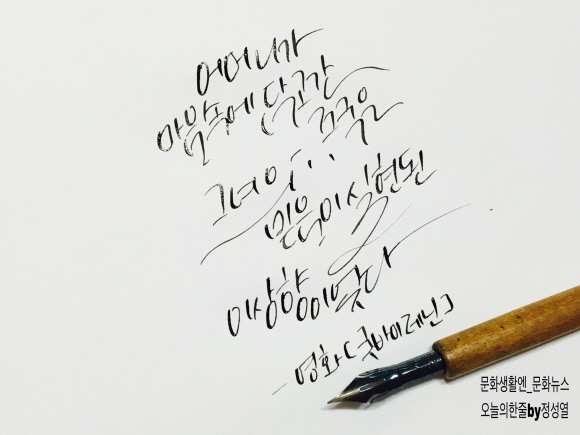 어머니가
마음속에 단고간
조국은
그녀의..
믿음이 실현된
이상향이었다
- 영화 [굿바이레닌]
문화생활엔_문화뉴스
오늘의한줄by정성열